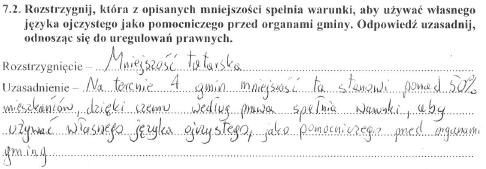 7.2. Rozstrzygnij, która z opisanych mniejszości spełnia warunki, aby używać własnego
języka ojczystego jako pomocniczego przed organami gminy. Odpowiedź uzasadnij,
odnosząc się do uregulowań prawnych.
Rozstrzygnięcie – Mniejszość tatarska
Uzasadnienie – Na terenie 4 gmin mniejszość ta stanowi ponad 50%
mieszkańców, dzięki czemu według prawa spełnia warunki, aby
używać własnego języka ojczystego, jako pomocniczego przed organami
gminy